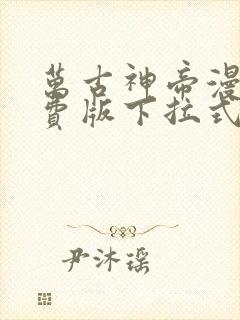 萬古神帝漫
費版下拉式
尹沐瑶